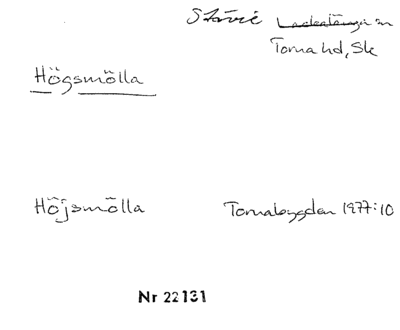 Stävie Lackalänga sn
Torna hd, Sk
Högsmölla
Höjsmölla Tornabygden 1977:10
Nr 22131